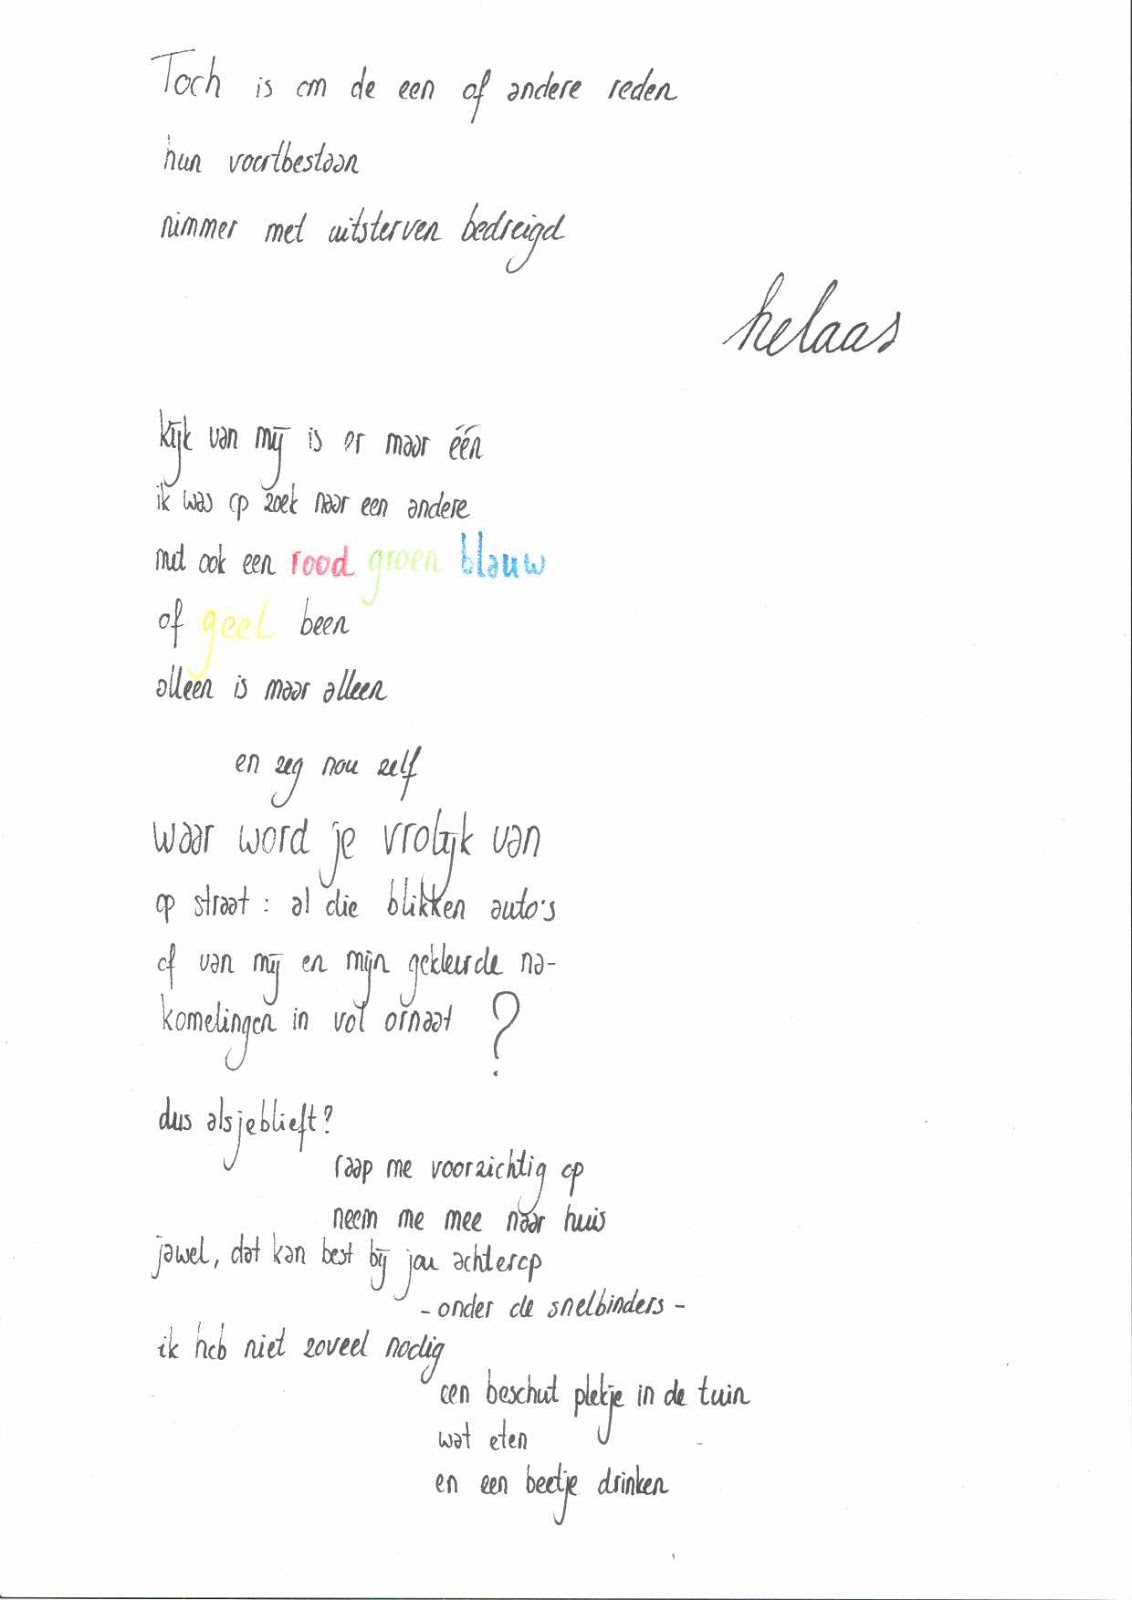 Toch is om de een of andere reden
hun voortbestaan
nimmer met uitsterven bedreigd
helaas
kijk van mij is er maar één
ik was op zoek naar een andere
met ook een rood groen blauw
of geel been
alleen is maar alleen
en zeg nou zelf
waar word je vrolijk van
op straat: al die blikken auto's
of van mij en mijn gekleurde na-
komelingen in vol ornaat ?
dus alsjeblieft?
raap me voorzichtig op
neem me mee naar huis
jawel, dat kan best bij jou achterop
- onder de snelbinders -
ik heb niet zoveel nodig
een beschut plekje in de tuin
wat eten
en een beetje drinken